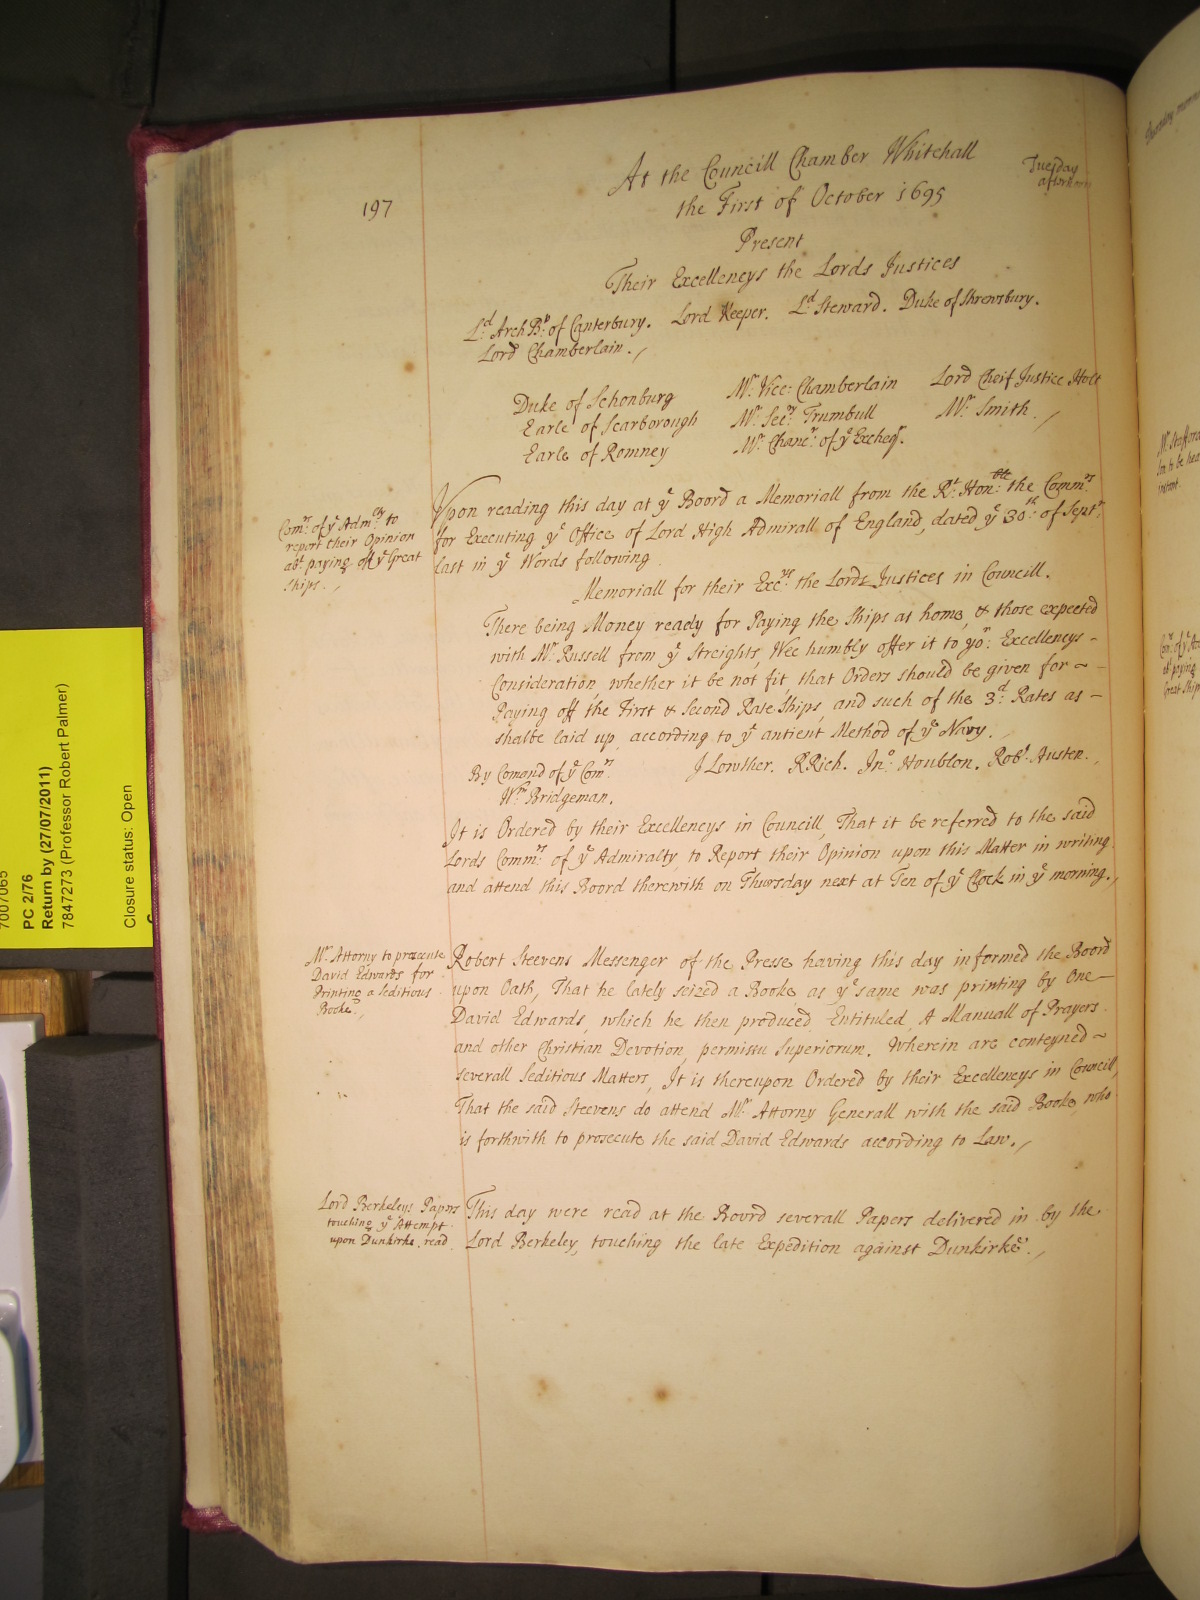 At the Councill Chamber Whitehall
the First of October 1695
Tuesday
afternoon
197
Present
Their Excellencys the Lords Justices
Ld. Arch Bp. of Canterbury. Lord Keeper. Ld. Steward. Duke of Shrewsbury.
Lord Chamberlain.
Duke of Schonburg
Earle of Scarborough
Earle of Romney
Mr. Vice-Chamberlain
Mr. Secry. Trumbull
Mr. Chancr. of ye Excheqr.
Lord Cheif Justice Holt
Mr. Smith.
Comrs. of ye Admlty. to
report their Opinion
abt. paying off ye Great
Ships.
Upon reading this day at ye Boord a Memoriall from the Rt. Honble. the Commrs.
for Executing ye Office of Lord High Admirall of England, dated ye 30th. of Septr.
last in ye Words following
Memoriall for their Excys. the Lords Justices in Councill.
There being Money ready for Paying the Ships at home, & those expected
with Mr. Russell from ye Streights, Wee humbly offer it to yor. Excellencys
Consideration, whether it be not fit, that Orders should be given for
Paying off the First & Second Rate Ships, and such of the 3d. Rates as
shalbe laid up, according to ye antient Method of ye Navy.
By Comand of ye Comrs.
Wm. Bridgeman.
J Lowther. R Rich. Jno. Houblon. Robt. Austen.
It is Ordered by their Excellencys in Councill, That it be referred to the said
Lords Commrs. of ye Admiralty, to Report their Opinion upon this Matter in writing
and attend this Boord therewith on Thursday next at Ten of ye Clock in ye morning.
Mr. Attorny to prosecute
David Edwards for
Printing a Seditious
Booke.
Robert Steevens Messenger of the Presse having this day informed the Boord
upon Oath, That he lately seized a Booke as ye same was printing by One
David Edwards, which he then produced, Entituled, A Manuall of Prayers
and other Christian Devotion, permissu Superiorum. Wherein are conteyned
severall Seditious Matters, It is thereupon Ordered by their Excellencys in Councill,
That the said Steevens do attend Mr. Attorny Generall with the said Booke, who
is forthwith to prosecute the said David Edwards according to Law.
Lord Berkeleys Papers
touching ye Attempt
upon Dunkirke, read
This day were read at the Bourd severall Papers delivered in by the
Lord Berkeley, touching the late Expedition against Dunkirke.
PC 2/76
Return by (27/07/2011)
7847273 (Professor Robert Palmer)
Closure status: Open